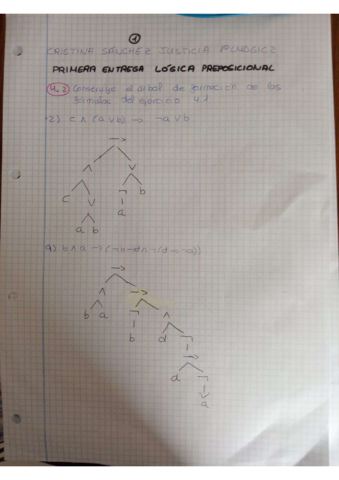 1
CRISTINA SÁNCHEZ JUSTICIA
PRIMERA ENTREGA LÓGICA PREPOSICIONAL
4.2 Construye el árbol de formación de las
fórmulas del ejercicio 4.1
2) c ∧ (a ∨ b) → ¬a ∨ b
→
∧ ∨
c ∨ ¬ b
a b a
9) b ∧ a → (¬b → d ∧ ¬(d → ¬a))
→
∧ →
b a ¬ ∧
b d ¬
→
d ¬
a